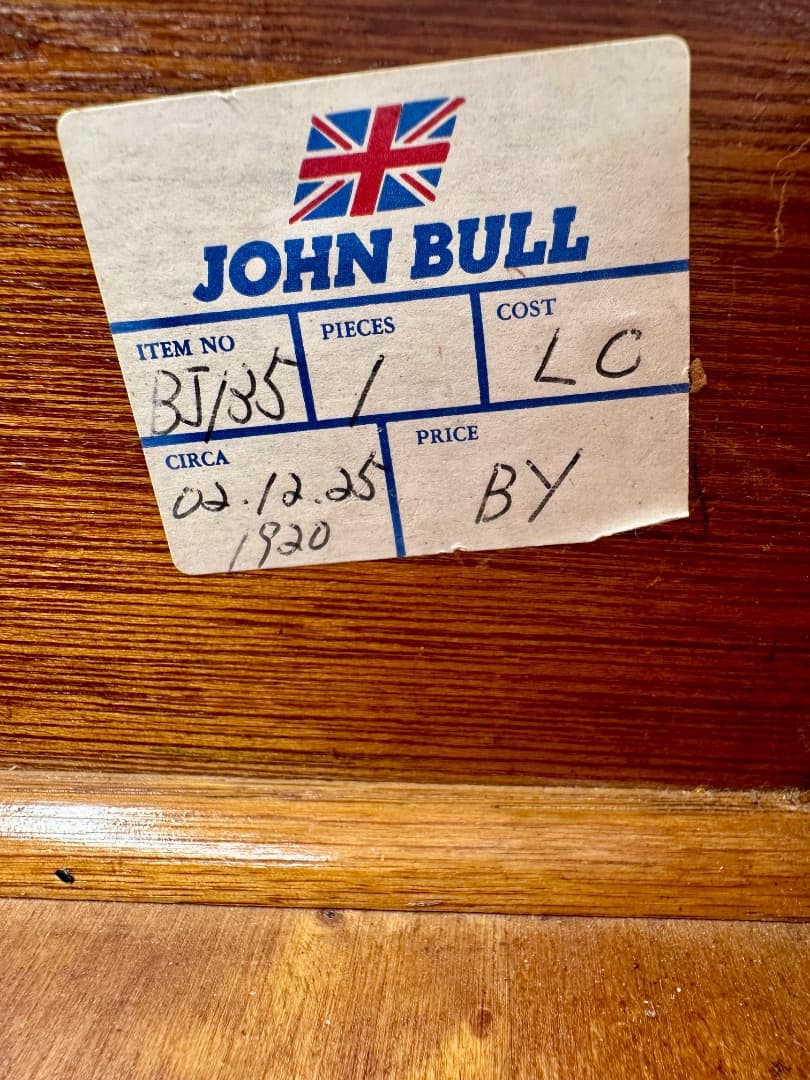 JOHN BULL
ITEM NO
BJ/85
PIECES
1
COST
LC
CIRCA
02.12.25
1920
PRICE
BY